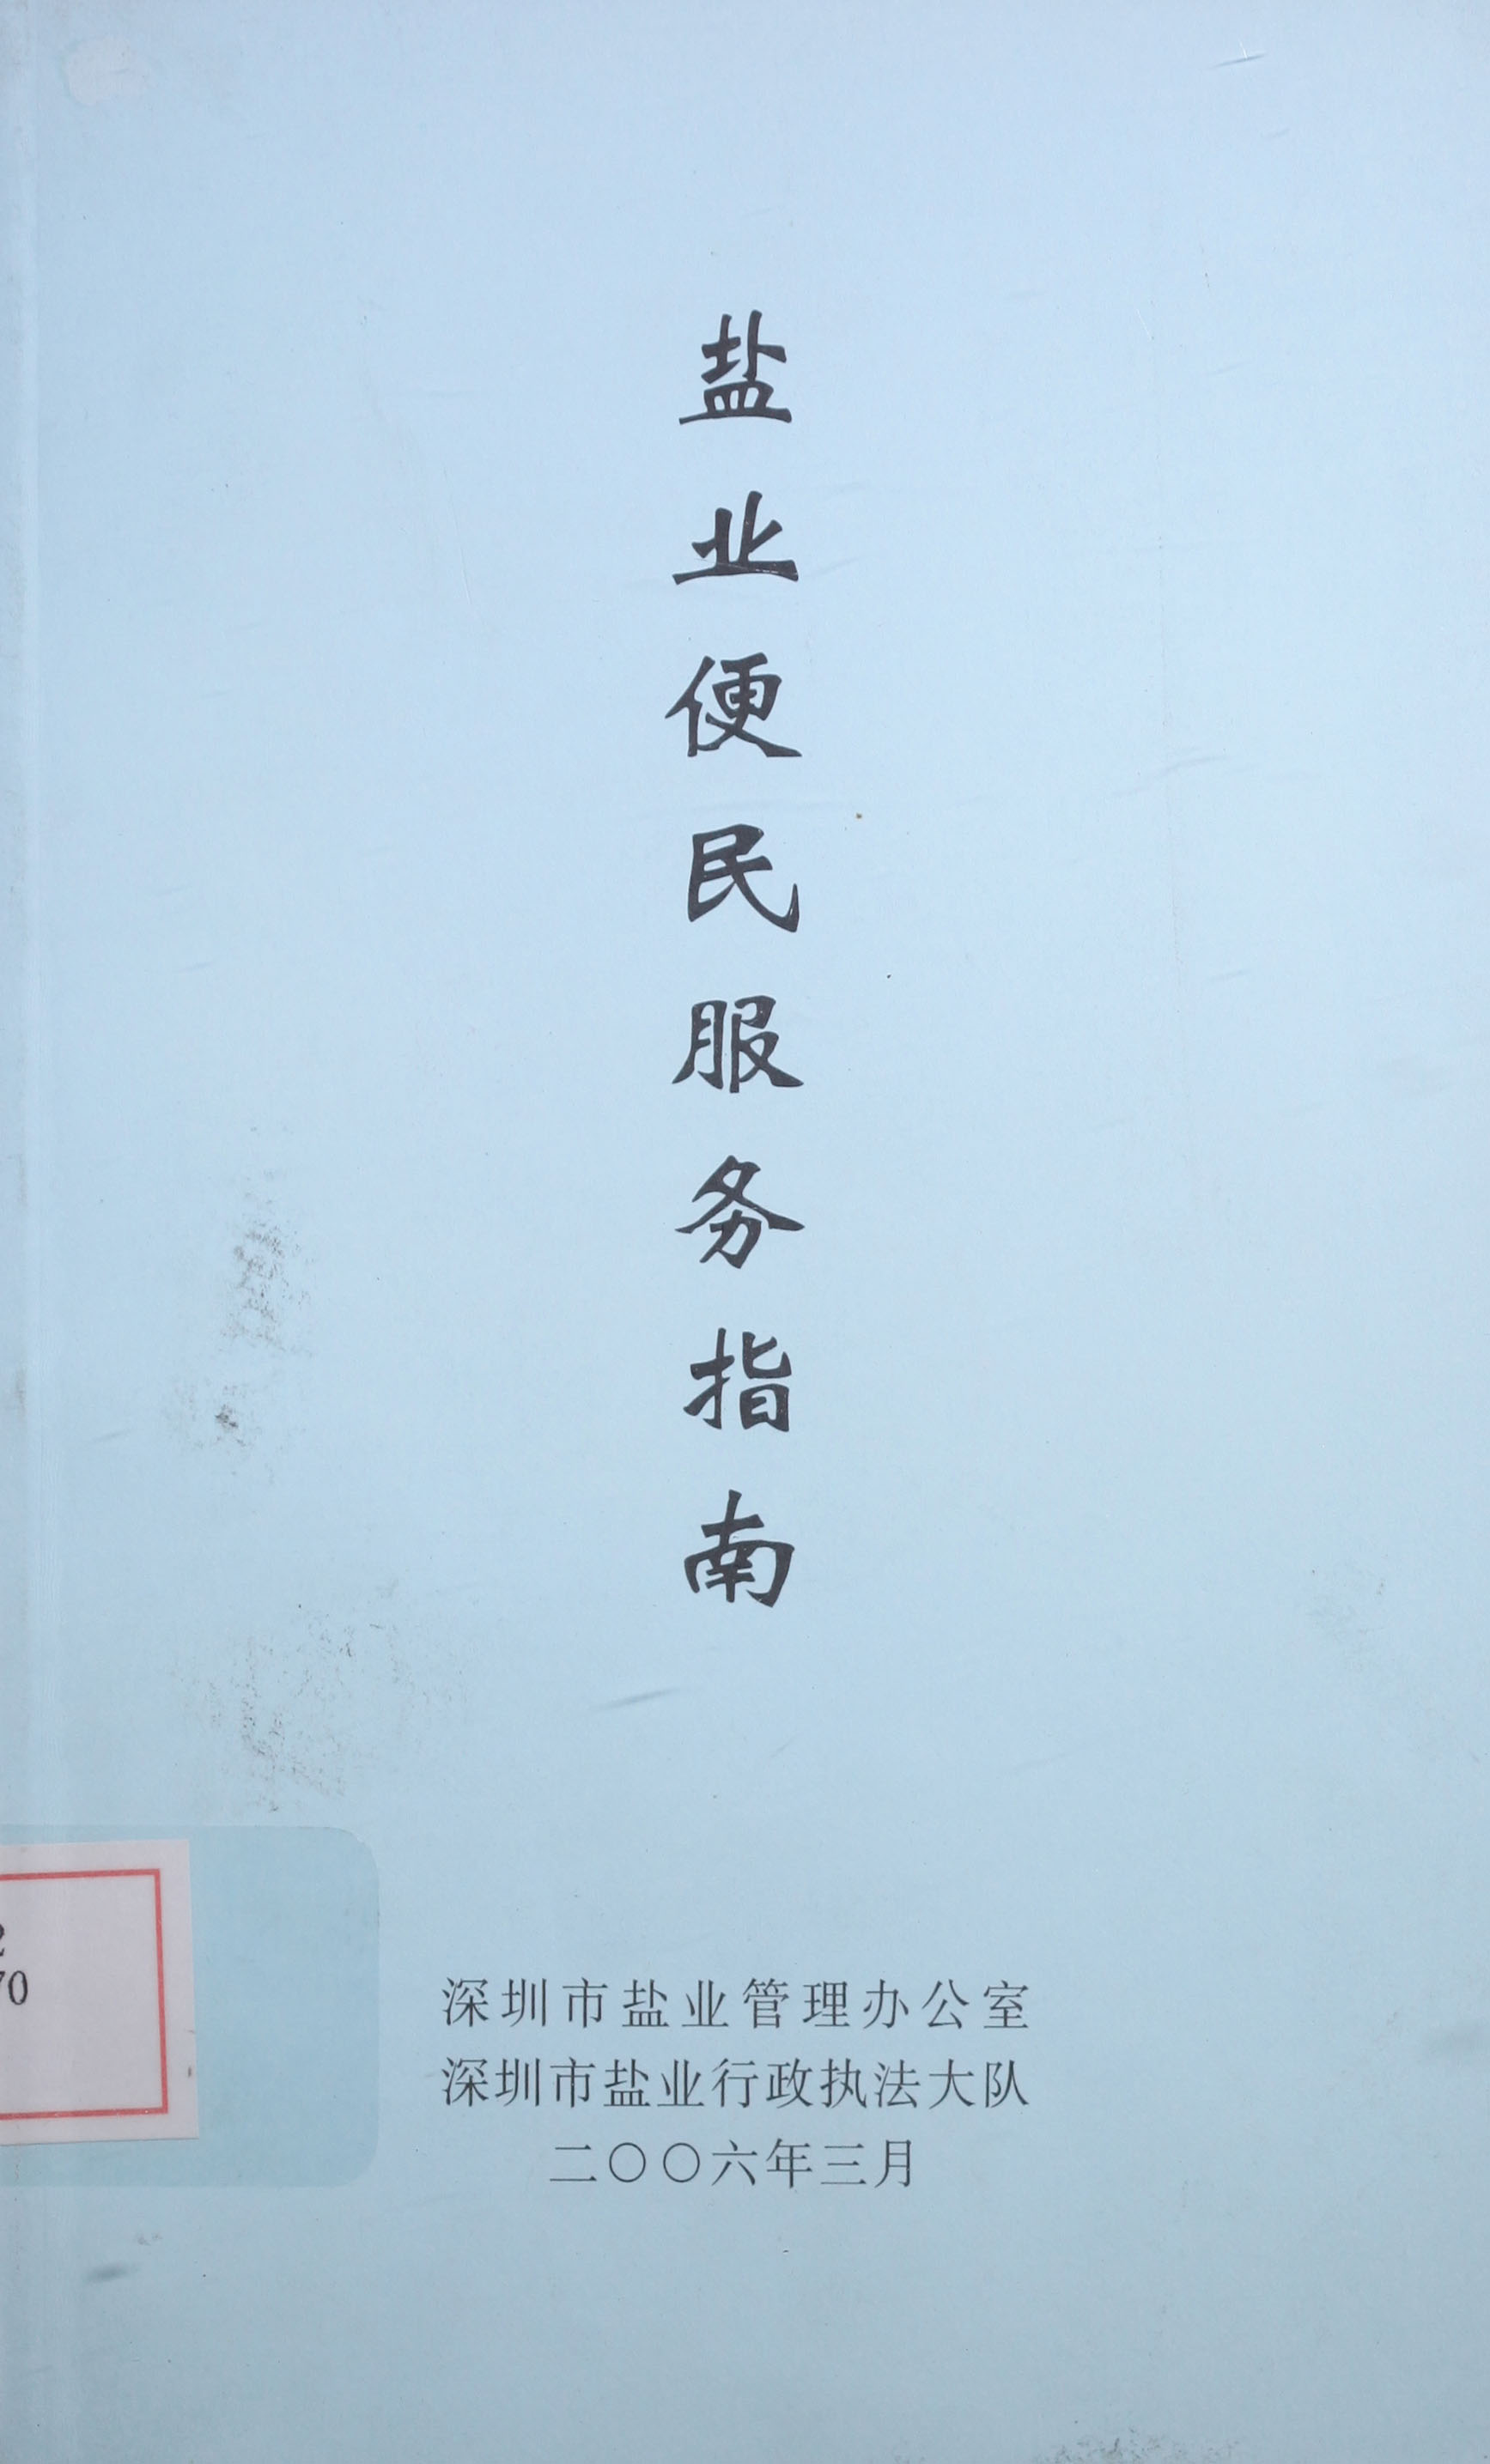 盐业便民服务指南
深圳市盐业管理办公室
深圳市盐业行政执法大队
二〇〇六年三月
2
70